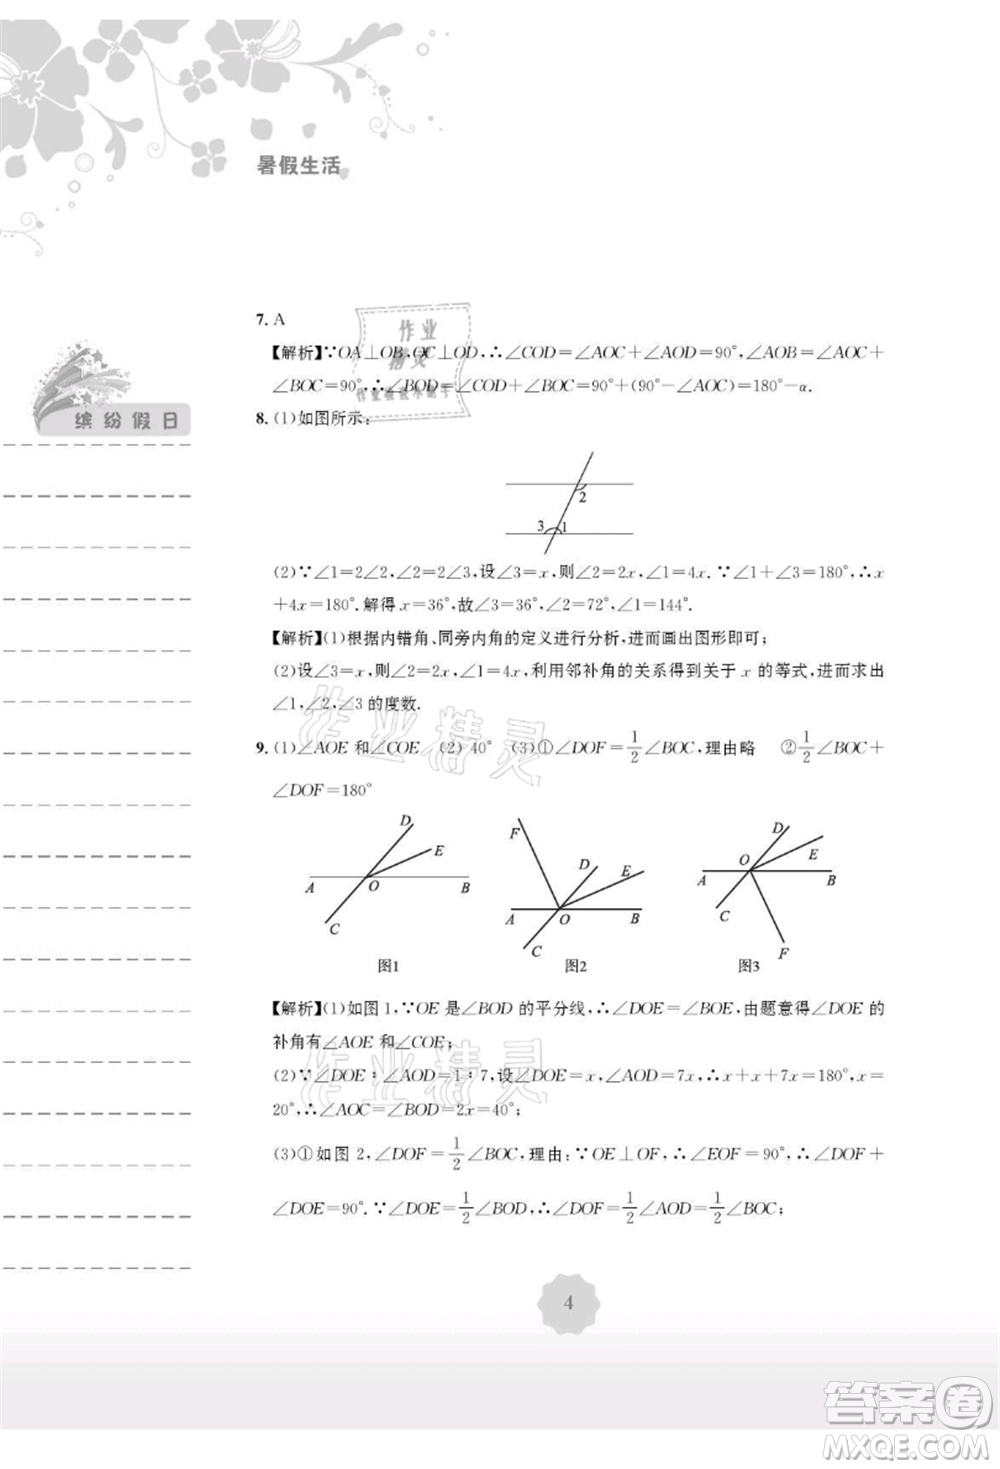 暑假生活
缤纷假日
7. A
【解析】∵OA⊥OB,OC⊥OD,∴∠COD=∠AOC+∠AOD=90°,∠AOB=∠AOC+
∠BOC=90°,∴∠BOD=∠COD+∠BOC=90°+(90°-∠AOC)=180°-α.
8. (1)如图所示:
2
3 1
(2)∵∠1=2∠2,∠2=2∠3,设∠3=x,则∠2=2x,∠1=4x.∵∠1+∠3=180°,∴x
+4x=180°.解得x=36°,故∠3=36°,∠2=72°,∠1=144°.
【解析】(1)根据内错角、同旁内角的定义进行分析,进而画出图形即可;
(2)设∠3=x,则∠2=2x,∠1=4x,利用邻补角的关系得到关于 x 的等式,进而求出
∠1,∠2,∠3的度数.
9. (1)∠AOE 和∠COE (2) 40° (3)①∠DOF=1/2∠BOC,理由略 ②1/2∠BOC+
∠DOF=180°
D E A O B C
F D E A O B C
D O E A B C F
图1 图2 图3
【解析】(1)如图 1,∵OE 是∠BOD 的平分线,∴∠DOE=∠BOE,由题意得∠DOE 的
补角有∠AOE 和∠COE;
(2)∵∠DOE∶∠AOD=1∶7,设∠DOE=x,∴∠AOD=7x,∴x+x+7x=180°,x=
20°,∴∠AOC=∠BOD=2x=40°;
(3)①如图 2,∠DOF=1/2∠BOC,理由:∵OE⊥OF,∴∠EOF=90°,∴∠DOF+
∠DOE=90°.∵∠DOE=1/2∠BOD,∴∠DOF=1/2∠AOD=1/2∠BOC;
4
作业精灵
作业精灵
作业精灵
答案卷
MXQE.COM